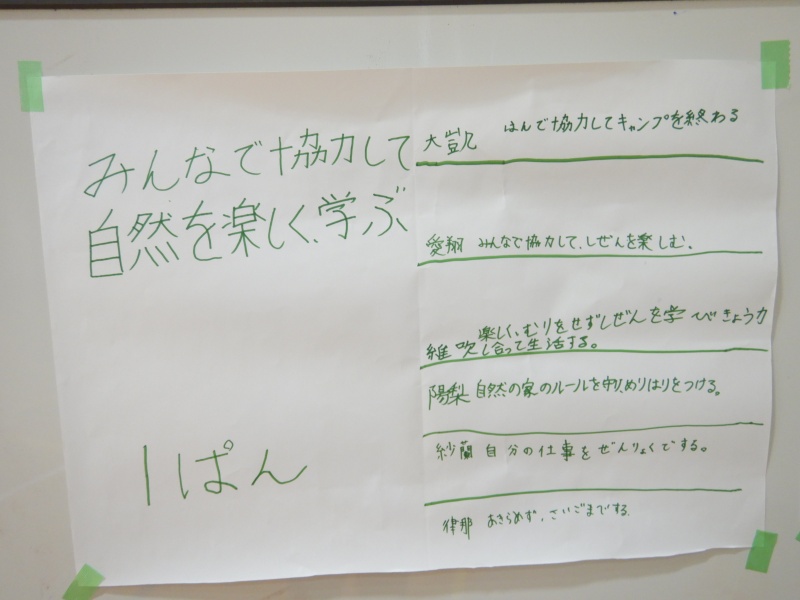 みんなで協力して
自然を楽しく、学ぶ
1ぱん
大凱 はんで協力してキャンプを終わる
愛翔 みんなで協力して、しぜんを楽しむ。
楽しく、むりをせずしぜんを学びきょう力
維吹 し合って生活する。
陽梨 自然の家のルールを守り、めりはりをつける。
紗蘭 自分の仕事をぜんりょくでする。
律那 あきらめず、さいごまでする。